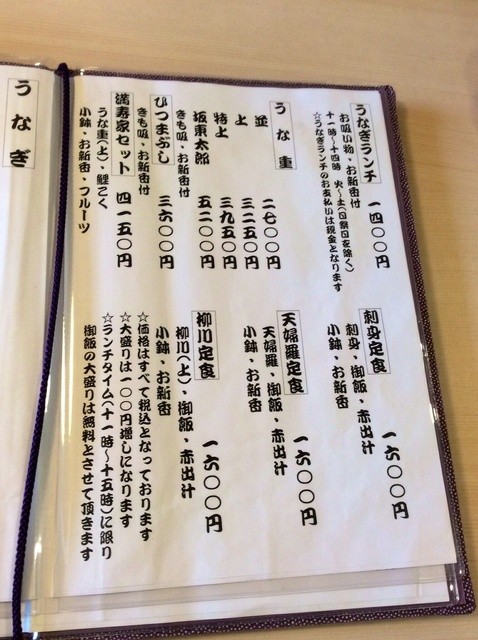 うなぎランチ 一四〇〇円
お吸い物・お新香付
十一時～十四時 火～土(日祭日を除く)
☆うなぎランチのお支払いは現金となります
うな重
並 二七〇〇円
上 三二五〇円
特上 三九五〇円
坂東太郎 五二〇〇円
きも吸・お新香付
ひつまぶし 三六〇〇円
きも吸・お新香付
満寿家セット 四一五〇円
うな重(上)・鯉こく
小鉢・お新香・フルーツ
刺身定食 一六〇〇円
刺身・御飯・赤出汁
小鉢・お新香
天婦羅定食 一六〇〇円
天婦羅・御飯・赤出汁
小鉢・お新香
柳川定食 一六〇〇円
柳川(上)・御飯・赤出汁
小鉢・お新香
☆価格はすべて税込となっております
☆大盛りは一〇〇円増しになります
☆ランチタイム(十一時～十五時)に限り
御飯の大盛りは無料とさせて頂きます
うなぎ